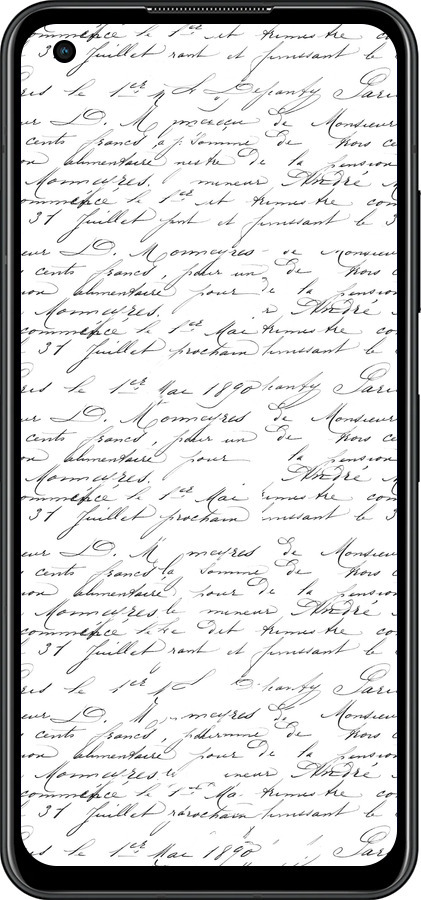 commence le 1er et trimestre con
31 Juillet rant et finissant le
ris le 1er Depanby Paris
eur D. M Monsieur
cents francs, a p. Somme de trois ce
on alimentaire de la pension
Monnayres. mineur André
commence le 1er et trimestre con
31 Juillet et finissant le 3
eur D. Monnayres de Monsieur
cents francs, pour un de trois c
ion alimentaire pour la pension
Monnayres. André
commence le 1er Mai trimestre co
31 Juillet prochain finissant le
ris le 1er Mai 1890 Paris
eur D. Monnayres de Monsieur
cents francs, pour un de trois ce
on alimentaire pour la pension
Monnayres. André
commence le 1er Mai trimestre co
31 Juillet prochain finissant le 3
eur D. M mayres de Monsieur
cents francs la Somme de trois c
on alimentaire pour de la pension
Monnayres le mineur André
commence le dit trimestre co
31 Juillet rant et finissant le
ris le 1er Paris
eur D. M mayres de Monsieur
cents francs, de trois c
ion alimentaire pour de la pension
Monnayres ineur André
commence le 1er Ma trimestre co
31 Juillet finissant le
ris le 1er Mai 1890 Paris